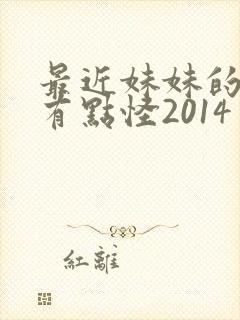 最近妹妹的
有點怪2014
紅離